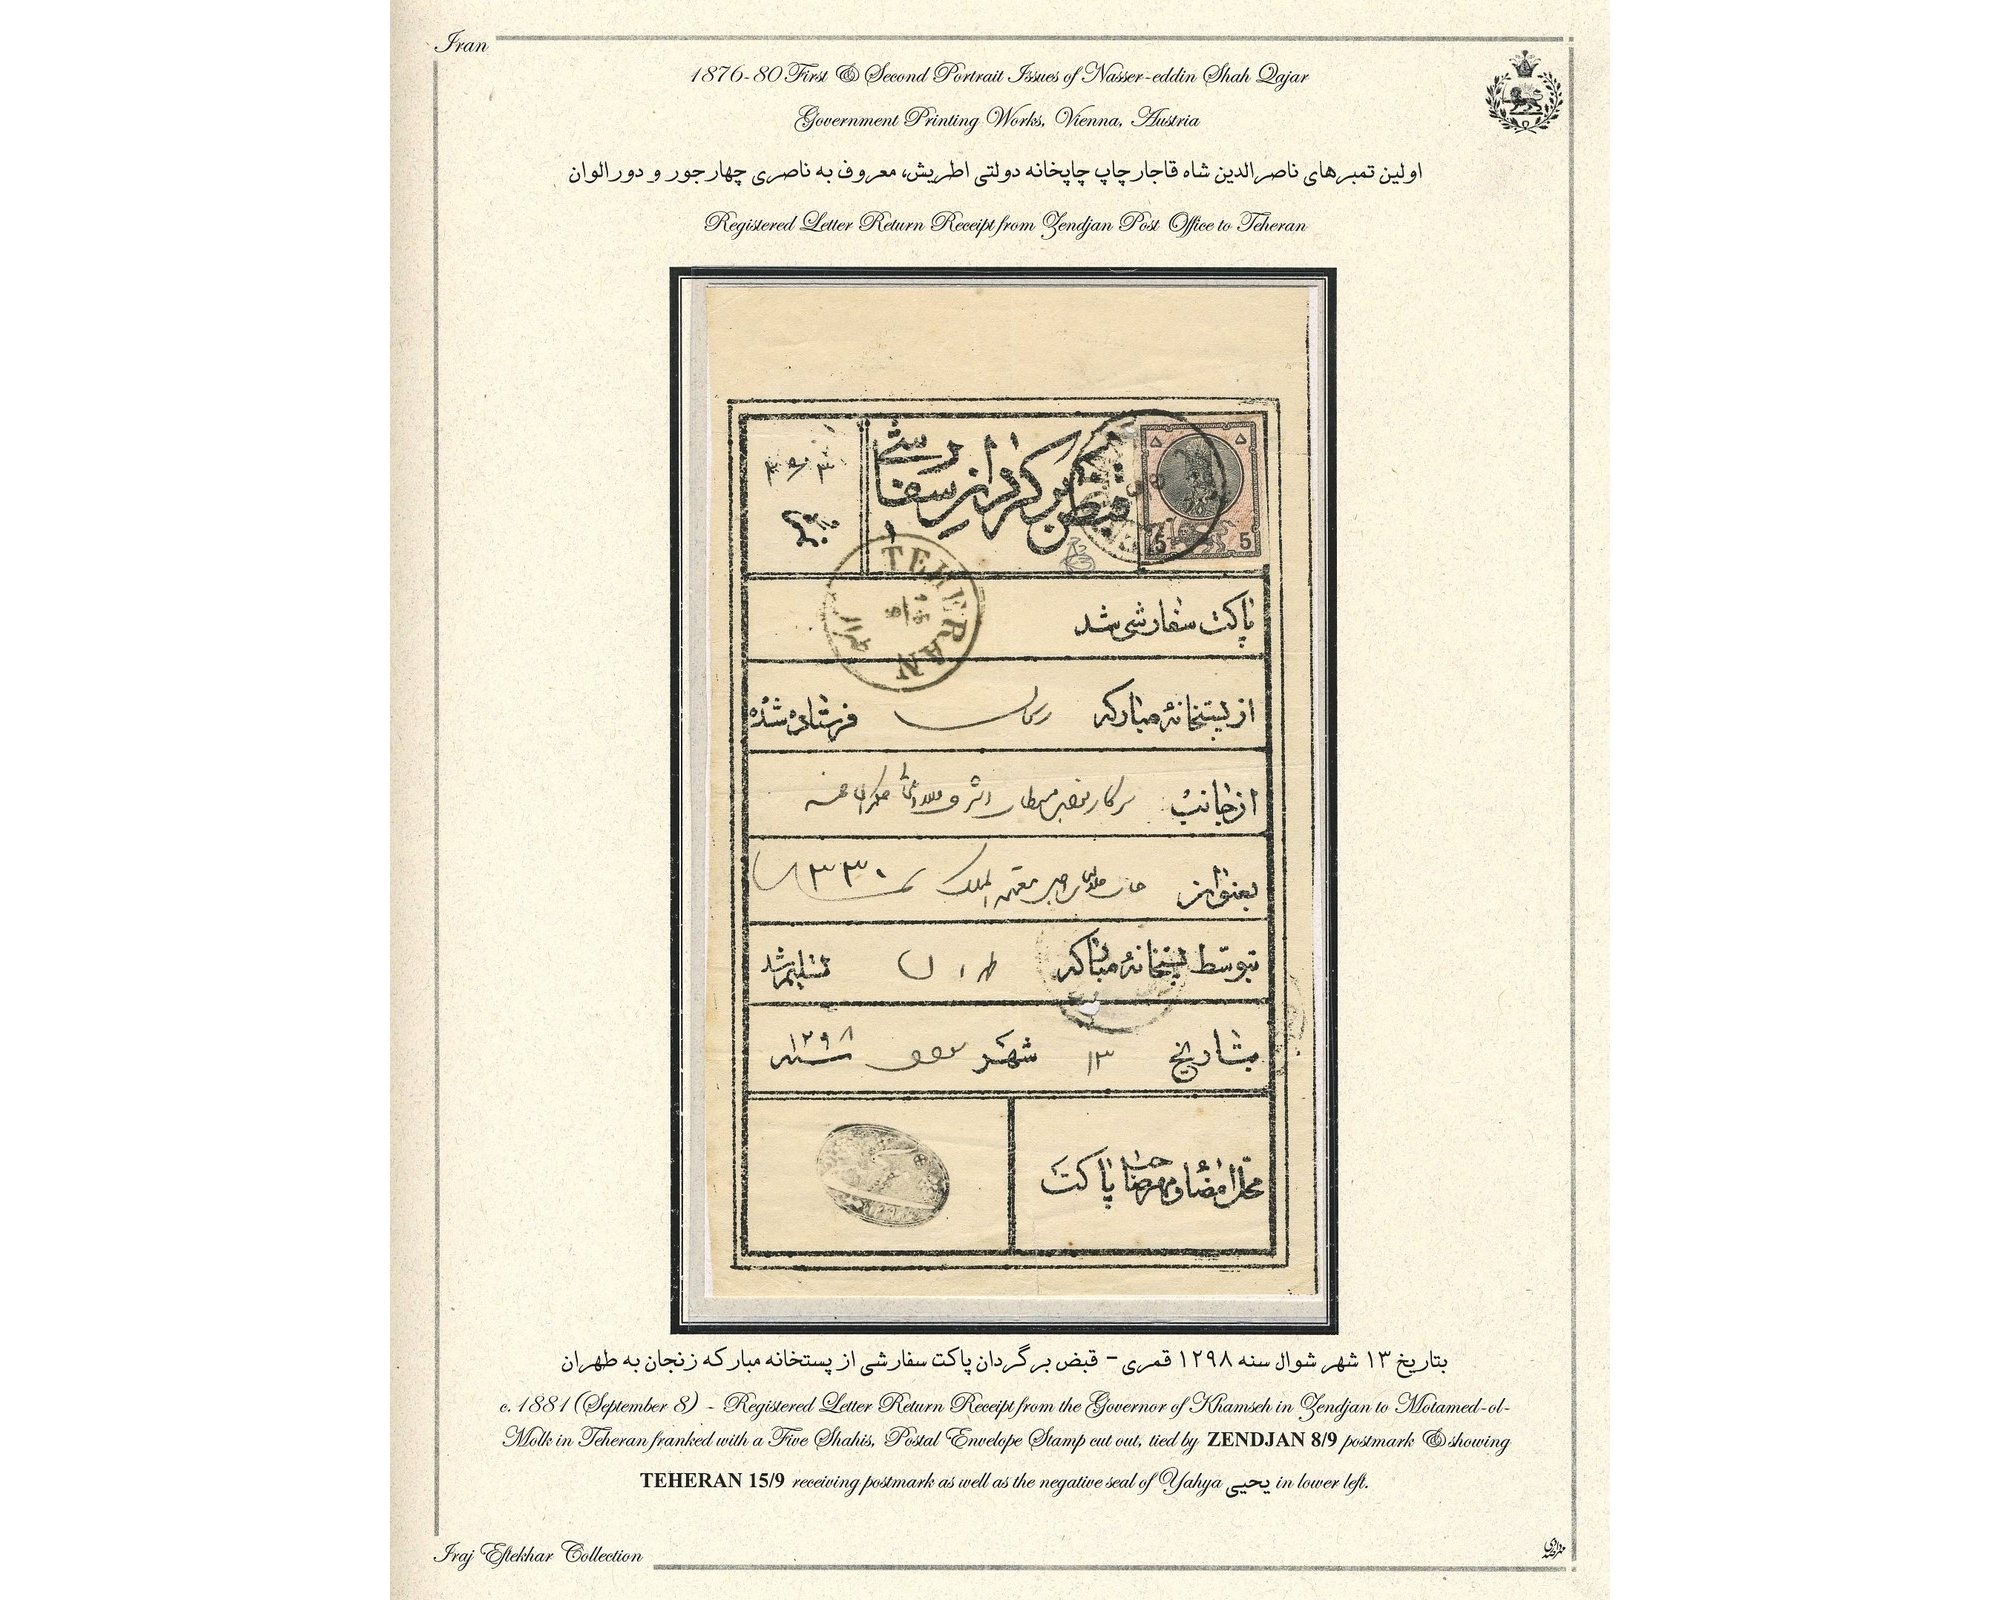 Iran
1876-80 First & Second Portrait Issues of Nasser-eddin Shah Qajar
Government Printing Works, Vienna, Austria
اولین تمبرهای ناصرالدین شاه قاجار چاپ چاپخانه دولتی اطریش، معروف به ناصری چهارجور و دورالوان
Registered Letter Return Receipt from Zendjan Post Office to Teheran
قبض برگردان سفارشی
۵ ۵
5 5
TEHERAN
15/9
طهران
پاکت سفارشی شد
از پستخانهٔ مبارکه فرستاده شده
از جانب
بعنوان
بتوسط پستخانهٔ مبارکه طهران تسلیم شد
بتاریخ ۱۳ شهر سنه ۱۲۹۸
محل امضا و مهر صاحب پاکت
بتاریخ ۱۳ شهر شوال سنه ۱۲۹۸ قمری - قبض برگردان پاکت سفارشی از پستخانه مبارکه زنجان به طهران
c. 1881 (September 8) - Registered Letter Return Receipt from the Governor of Khamseh in Zendjan to Motamed-ol-
Molk in Teheran franked with a Five Shahis, Postal Envelope Stamp cut out, tied by ZENDJAN 8/9 postmark & showing
TEHERAN 15/9 receiving postmark as well as the negative seal of Yahya یحیی in lower left.
Iraj Eftekhar Collection